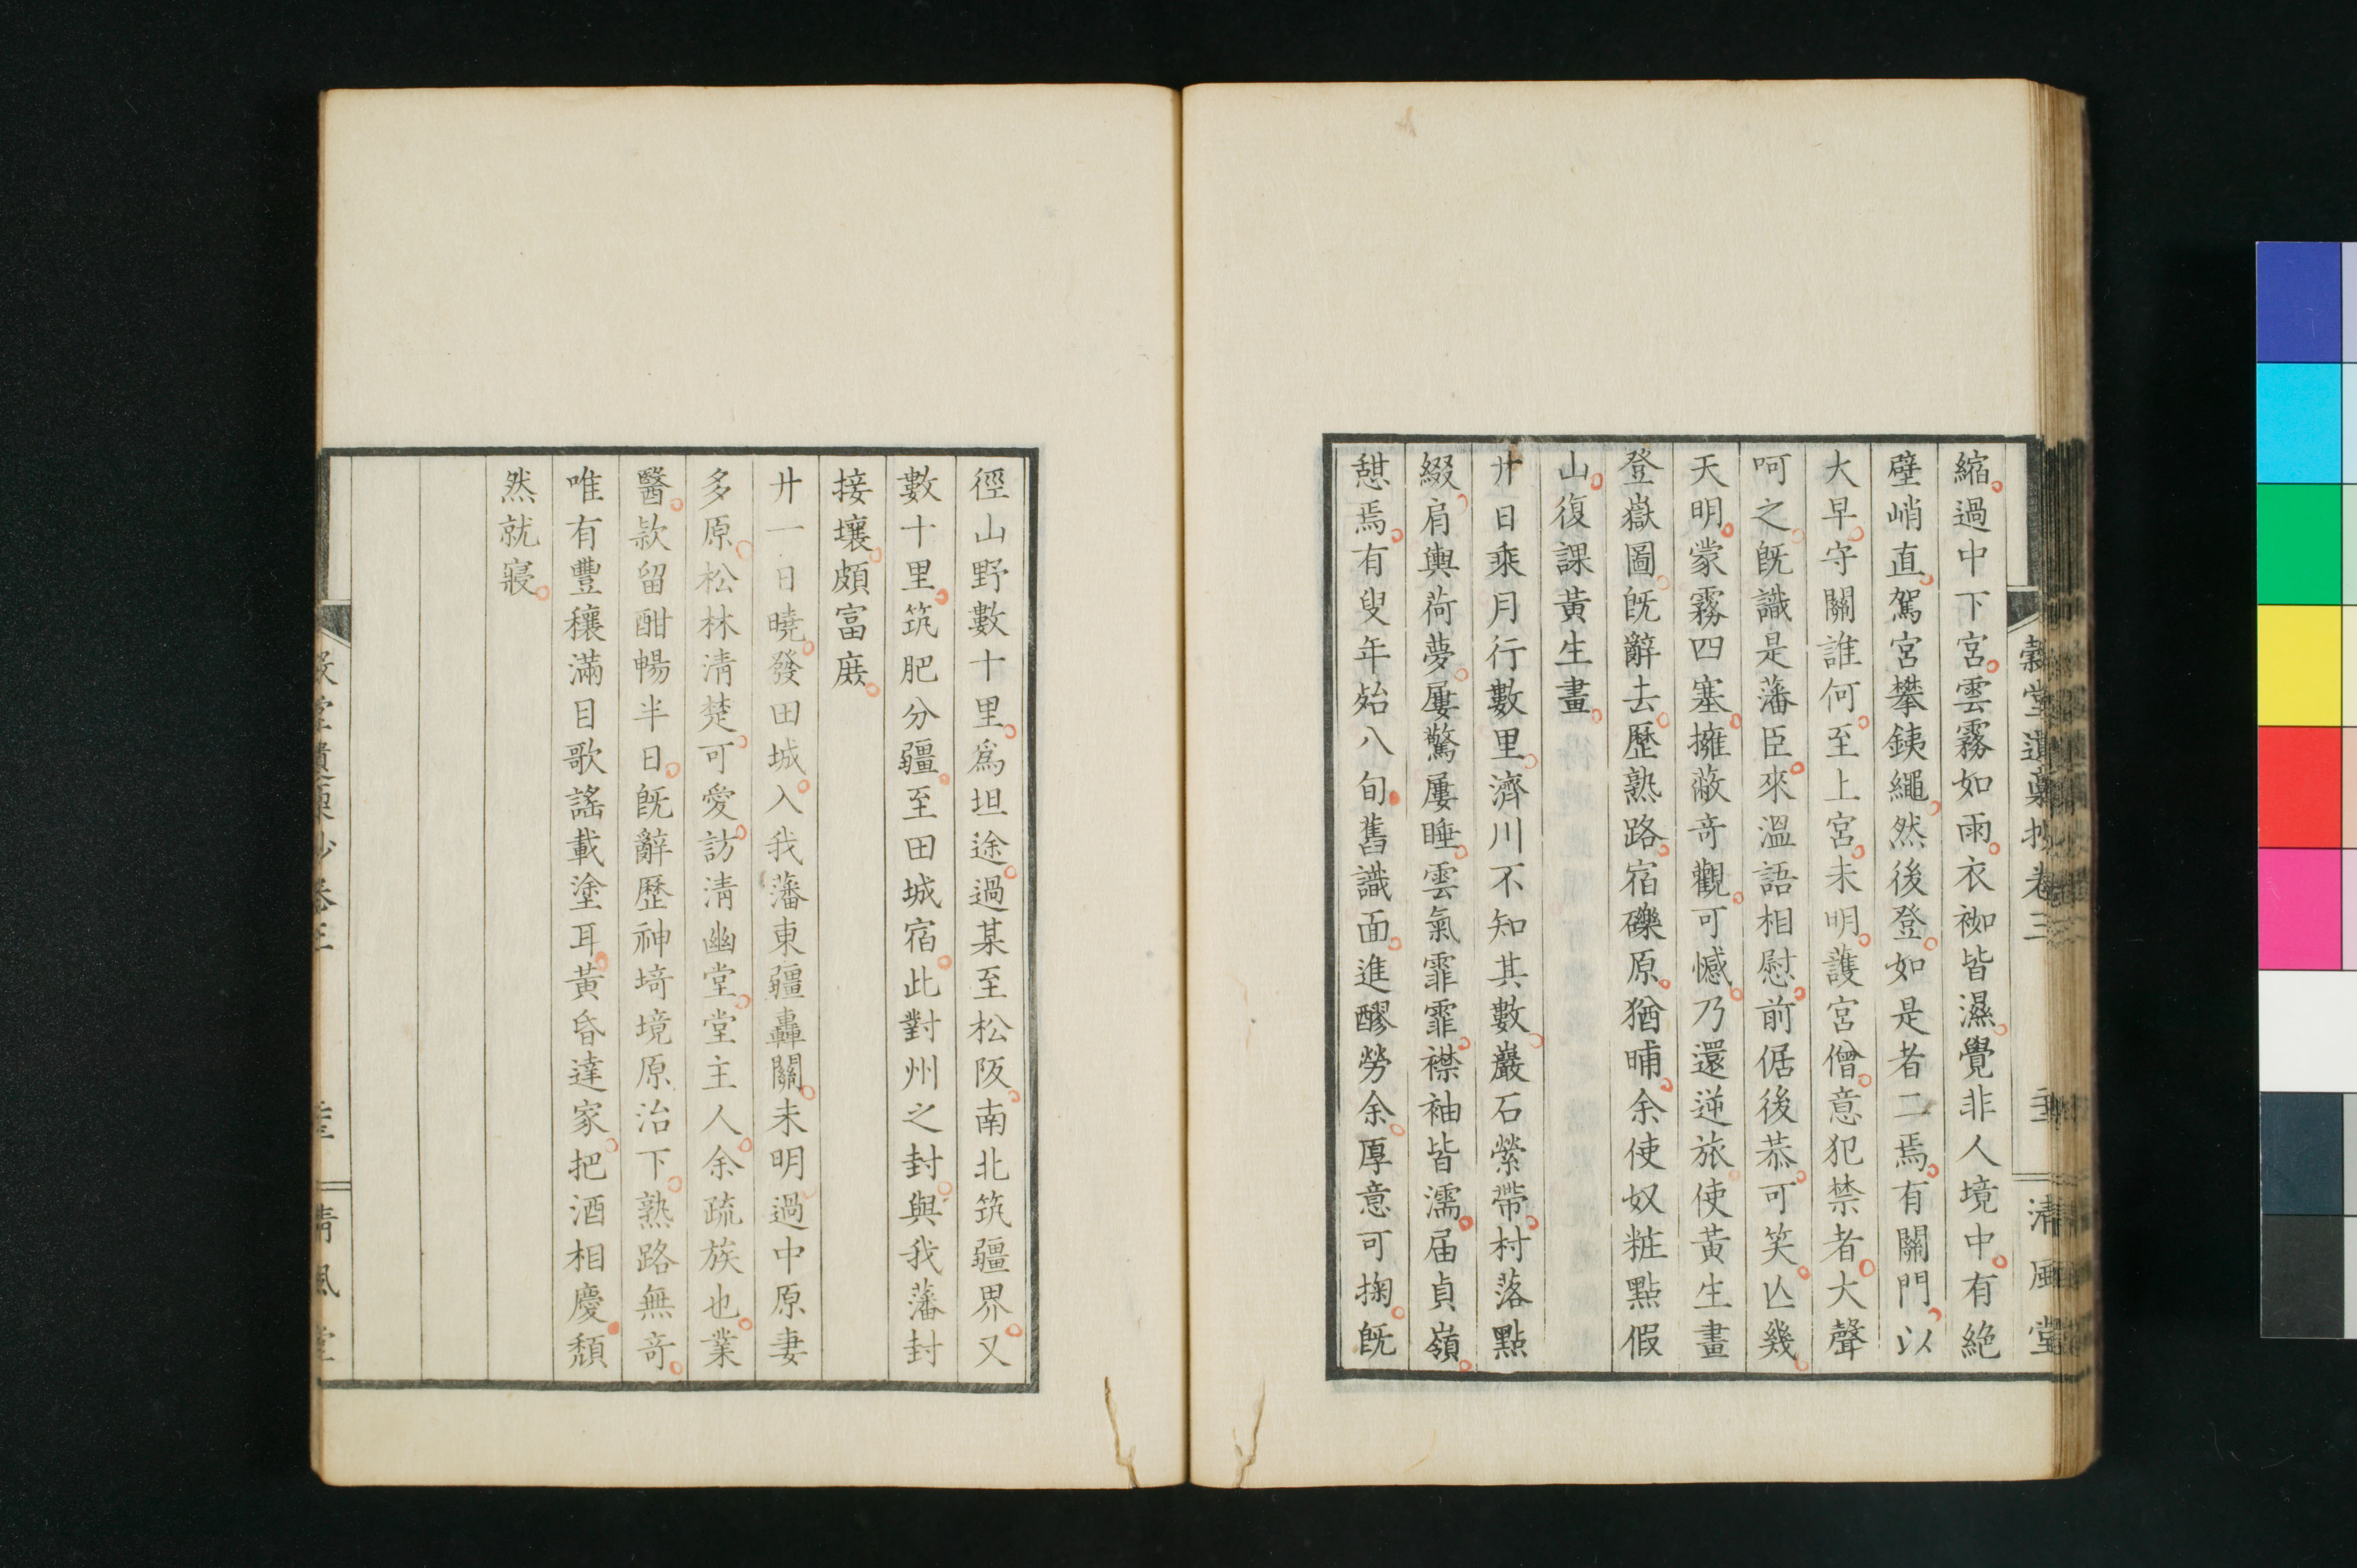 縮過中下宮雲霧如雨衣袽皆濕覺非人境中有絶
壁峭直駕宮攀銕繩然後登如是者二焉有關門以
大早守關誰何至上宮未明護宮僧意犯禁者大聲
呵之旣識是藩臣來溫語相慰前倨後恭可笑亾幾
天明蒙霧四塞擁蔽奇觀可憾乃還逆旅使黃生畫
登嶽圖旣辭去歷熟路宿礫原猶晡余使奴粧點假
山復課黃生畫
廾日乘月行數里濟川不知其數巖石縈帶村落點
綴肩輿荷夢屢驚屢睡雲氣霏霏襟袖皆濡届貞嶺
憇焉有叟年殆八旬舊識面進醪勞余厚意可掬旣
穀堂遺稾抄卷三
清風堂
徑山野數十里爲坦途過某至松阪南北筑疆界又
數十里筑肥分疆至田城宿此對州之封與我藩封
接壤頗富庶
廾一日曉發田城入我藩東疆轟關未明過中原妻
多原松林淸楚可愛訪淸幽堂堂主人余疏族也業
醫款留酣暢半日旣辭歷神埼境原治下熟路無奇
唯有豐穰滿目歌謠載塗耳黃昏達家把酒相慶頹
然就寢